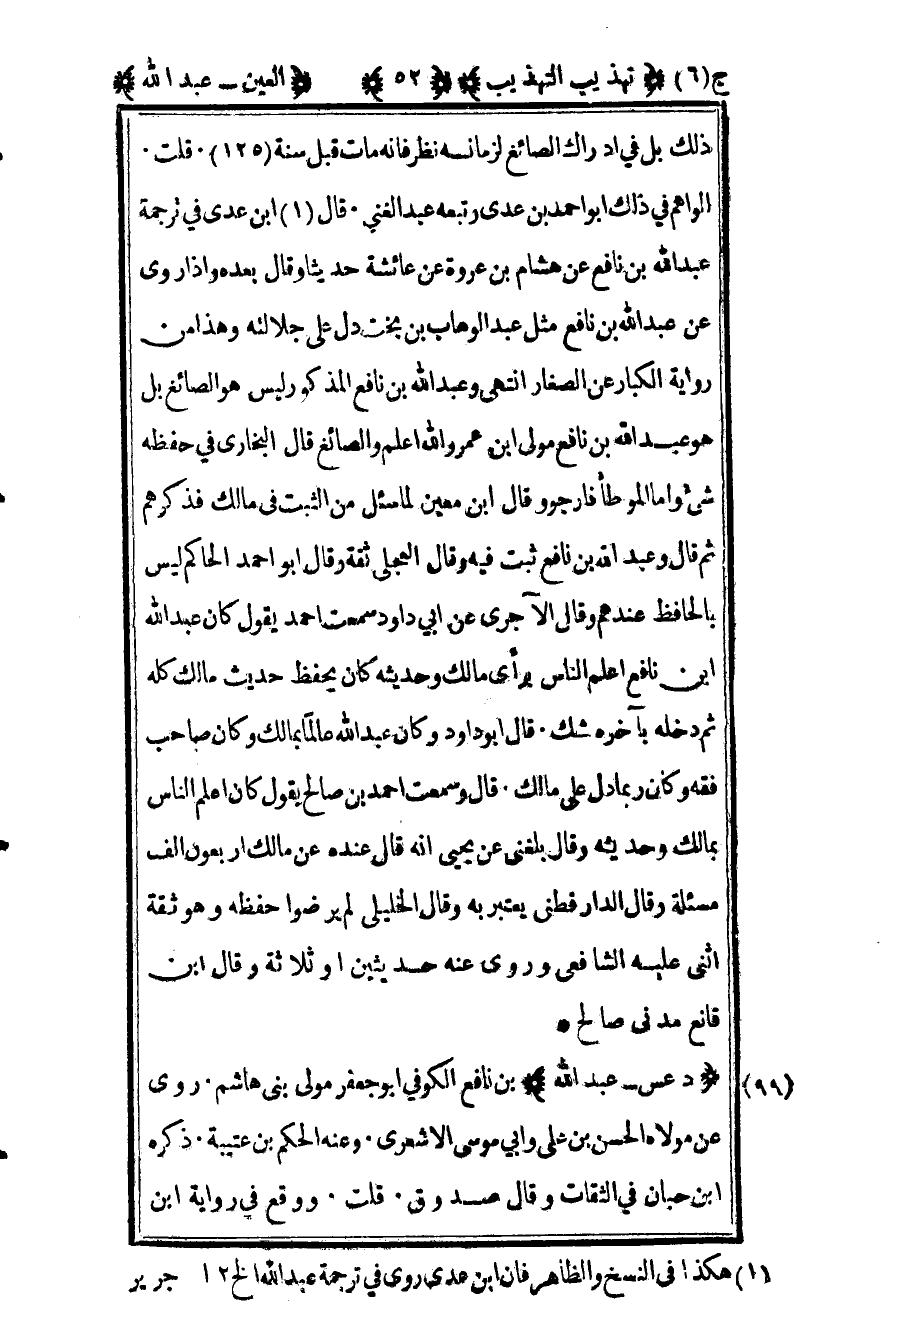 ج(٦) ﴿ تهذيب التهذيب ﴾ ﴿ ٥٢ ﴾ ﴿ العين ـ عبد الله ﴾
ذلك بل في ادراك الصائغ لزمانه نظر فانه مات قبل سنة (١٢٥)٠ قلت ٠
الواهم في ذلك ابو احمد بن عدى وتبعه عبد الغني ٠ قال (١) ابن عدى في ترجمة
عبدالله بن نافع عن هشام بن عروة عن عائشة حديثا وقال بعده واذا روى
عن عبدالله بن نافع مثل عبد الوهاب بن بخت دل على جلالته وهذا من
رواية الكبار عن الصغار انتهى وعبدالله بن نافع المذكور ليس هو الصائغ بل
هو عبد الله بن نافع مولى ابن عمر والله اعلم والصائغ قال البخارى في حفظه
شئ واما الموطأ فارجو وقال ابن معين لما سئل من الثبت فى مالك فذكرهم
ثم قال وعبد الله بن نافع ثبت فيه وقال العجلى ثقة وقال ابو احمد الحاكم ليس
بالحافظ عندهم وقال الآجرى عن ابي داود سمعت احمد يقول كان عبدالله
ابن نافع اعلم الناس برأى مالك وحديثه كان يحفظ حديث مالك كله
ثم دخله بآخره شك ٠ قال ابو داود وكان عبدالله عالمًا بمالك وكان صاحب
فقه وكان ربما دل على مالك ٠ قال وسمعت احمد بن صالح يقول كان اعلم الناس
بمالك وحديثه وقال بلغنى عن يحيى انه قال عنده عن مالك اربعون الف
مسئلة وقال الدارقطنى يعتبر به وقال الخليلى لم يرضوا حفظه وهو ثقة
اثنى عليه الشافعى وروى عنه حديثين او ثلاثة وقال ابن
قانع مدنى صالح ●
(٩٩) ﴿ د عس ـ عبد الله ﴾ بن نافع الكوفي ابو جعفر مولى بنى هاشم ٠ روى
عن مولاه الحسن بن على وابي موسى الاشعرى ٠ وعنه الحكم بن عتيبة ٠ ذكره
ابن حبان في الثقات وقال صدوق ٠ قلت ٠ ووقع في رواية ابن
(١) هكذا فى النسخ والظاهر فان ابن عدى روى في ترجمة عبدالله الخ ١٢ جرير